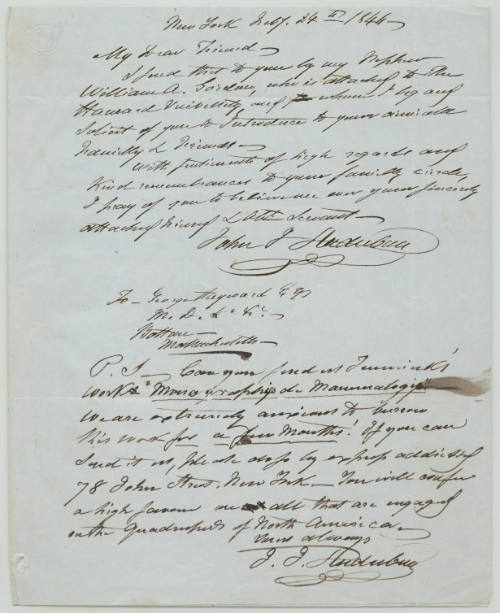 New York Feby. 24th 1846
My Dear Friend
I send this to you by my Nephew
William A. Gordon, who is attached to the
Harvard University, and whom I beg and
solicit of you to introduce to your amiable
Family & Friends
With sentiments of high regards and
Kind remembrances to your family circle,
I pray of you to believe me ever your sincerely
attached friend & obt Servant
John J. Audubon
To George Hayward Esqr
M.D. &c &c
Boston
Massachusetts
P.S. Can you send us Temminck's
work "Monographies de Mammalogie"
We are extremely anxious to borrow
this work for a few Months! If you can
send it us, please do so by express addressed
78 John Street New York You will confer
a high favour on all that are engaged
on the Quadrupeds of North America.
Yours always
J. J. Audubon